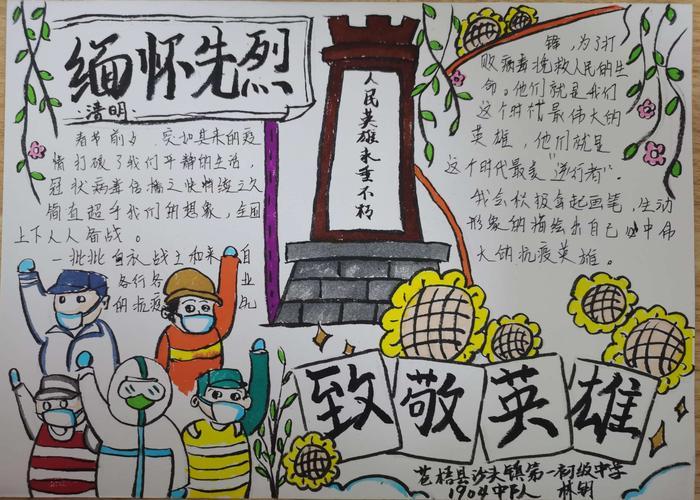 缅怀先烈
清明:
春节前夕,突如其来的疫
情打破了我们平静的生活,
冠状病毒传播之快持续之久
简直超乎我们的想象,全国
上下人人备战。
一批批白衣战士和来自
各行各业
的抗疫
人民英雄永垂不朽
锋,为了打
败病毒挽救人民的生
命。他们就是我们
这个时代最伟大的
英雄,他们就是
这个时代最美"逆行者"。
我会积极拿起画笔,生动
形象的描绘出自己心中伟
大的抗疫英雄。
致敬英雄
苍梧县沙头镇第一初级中学
1904